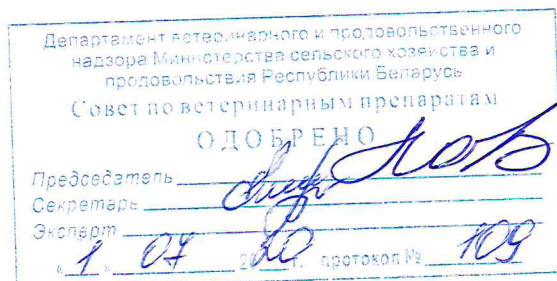 Департамент ветеринарного и продовольственного
надзора Министерства сельского хозяйства и
продовольствия Республики Беларусь
Совет по ветеринарным препаратам
ОДОБРЕНО
Председатель
Секретарь
Эксперт
"1" 07 2020 г. протокол № 109